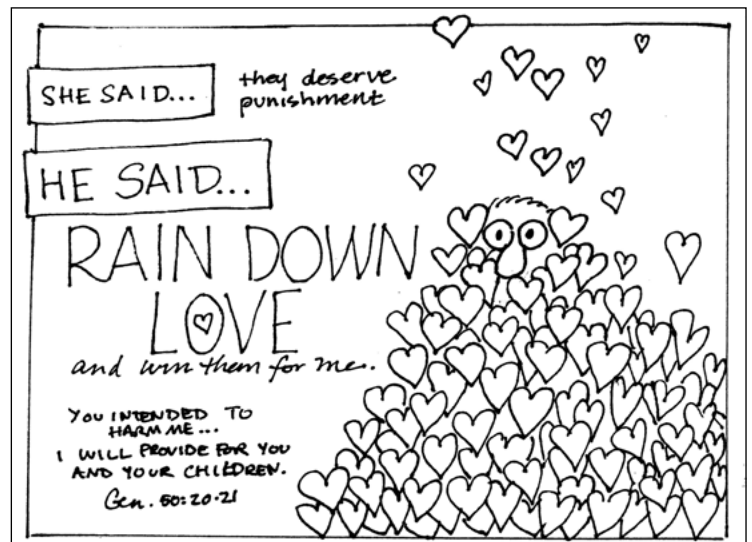 SHE SAID...
they deserve
punishment
HE SAID...
RAIN DOWN
LOVE
and win them for me.
YOU INTENDED TO
HARM ME...
I WILL PROVIDE FOR YOU
AND YOUR CHILDREN.
Gen. 50:20-21